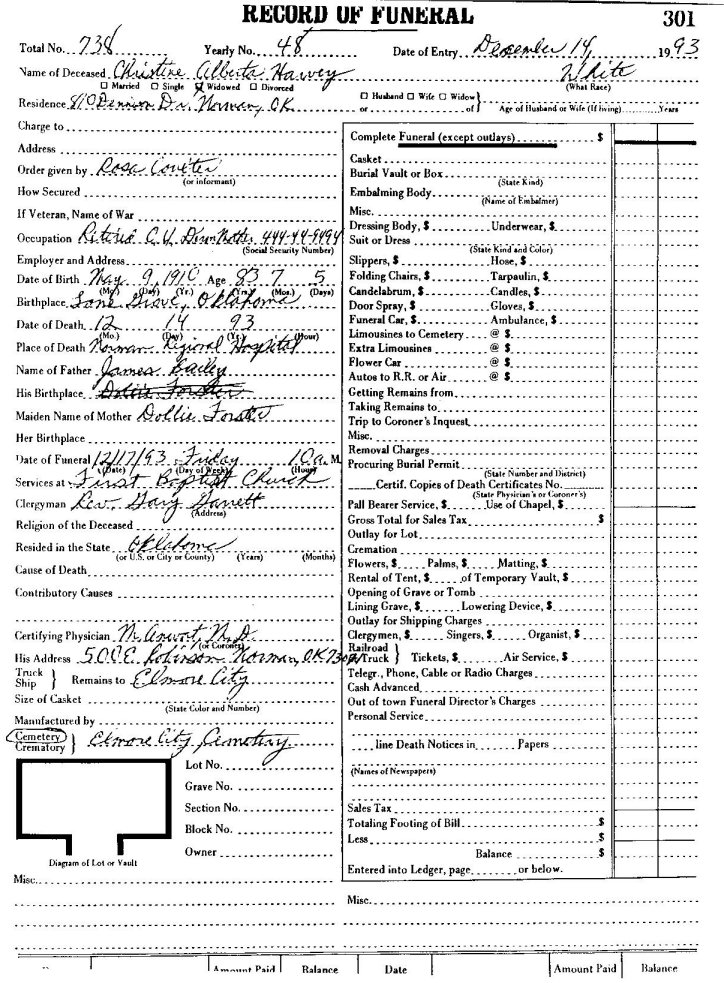 RECORD OF FUNERAL 301
Total No. 738 Yearly No. 48 Date of Entry December 14, 1993
Name of Deceased Christine Alberta Harvey White
☐ Married ☐ Single ☑ Widowed ☐ Divorced (What Race)
Residence 810 Denison Dr. Norman, OK ☐ Husband ☐ Wife ☐ Widow } or of Age of Husband or Wife (If living) Years
Charge to
Address
Order given by Rosa
(or informant)
How Secured
If Veteran, Name of War
Occupation Retired O.U. Dorm Mother 444-44-9494
(Social Security Number)
Employer and Address
Date of Birth May 9, 1910 Age 83 7 5
(Mo.) (Day) (Yr.) (Yrs.) (Mos.) (Days)
Birthplace Lone Grove, Oklahoma
Date of Death 12 14 93
(Mo.) (Day) (Yr.) (Hour)
Place of Death Norman Regional Hospital
Name of Father James Bailey
His Birthplace Dollie Forster
Maiden Name of Mother Dollie Forster
Her Birthplace
Date of Funeral 12/17/93 Friday 10 a. M.
(Date) (Day of Week) (Hour)
Services at First Baptist Church
Clergyman Rev. Gary Garrett
(Address)
Religion of the Deceased
Resided in the State Oklahoma
(or U.S. or City or County) (Years) (Months)
Cause of Death
Contributory Causes
Certifying Physician M. M.D.
(or Coroner)
His Address 500 E. Robinson Norman, OK
Truck Ship } Remains to Elmore City
Size of Casket
(State Color and Number)
Manufactured by
Cemetery Crematory } Elmore City Cemetery
Lot No.
Grave No.
Section No.
Block No.
Owner
Diagram of Lot or Vault
Misc.
Complete Funeral (except outlays) $
Casket
Burial Vault or Box
(State Kind)
Embalming Body
(Name of Embalmer)
Misc.
Dressing Body, $ Underwear, $
Suit or Dress
(State Kind and Color)
Slippers, $ Hose, $
Folding Chairs, $ Tarpaulin, $
Candelabrum, $ Candles, $
Door Spray, $ Gloves, $
Funeral Car, $ Ambulance, $
Limousines to Cemetery @ $
Extra Limousines @ $
Flower Car @ $
Autos to R.R. or Air @ $
Getting Remains from
Taking Remains to
Trip to Coroner's Inquest
Misc.
Removal Charges
Procuring Burial Permit
(State Number and District)
Certif. Copies of Death Certificates No.
(State Physician's or Coroner's)
Pall Bearer Service, $ Use of Chapel, $
Gross Total for Sales Tax $
Outlay for Lot
Cremation
Flowers, $ Palms, $ Matting, $
Rental of Tent, $ of Temporary Vault, $
Opening of Grave or Tomb
Lining Grave, $ Lowering Device, $
Outlay for Shipping Charges
Clergymen, $ Singers, $ Organist, $
Railroad /Truck } Tickets, $ Air Service, $
Telegr., Phone, Cable or Radio Charges
Cash Advanced
Out of town Funeral Director's Charges
Personal Service
line Death Notices in Papers
(Names of Newspapers)
Sales Tax
Totaling Footing of Bill $
Less $
Balance $
Entered into Ledger, page or below.
Misc.
Amount Paid Balance Date Amount Paid Balance